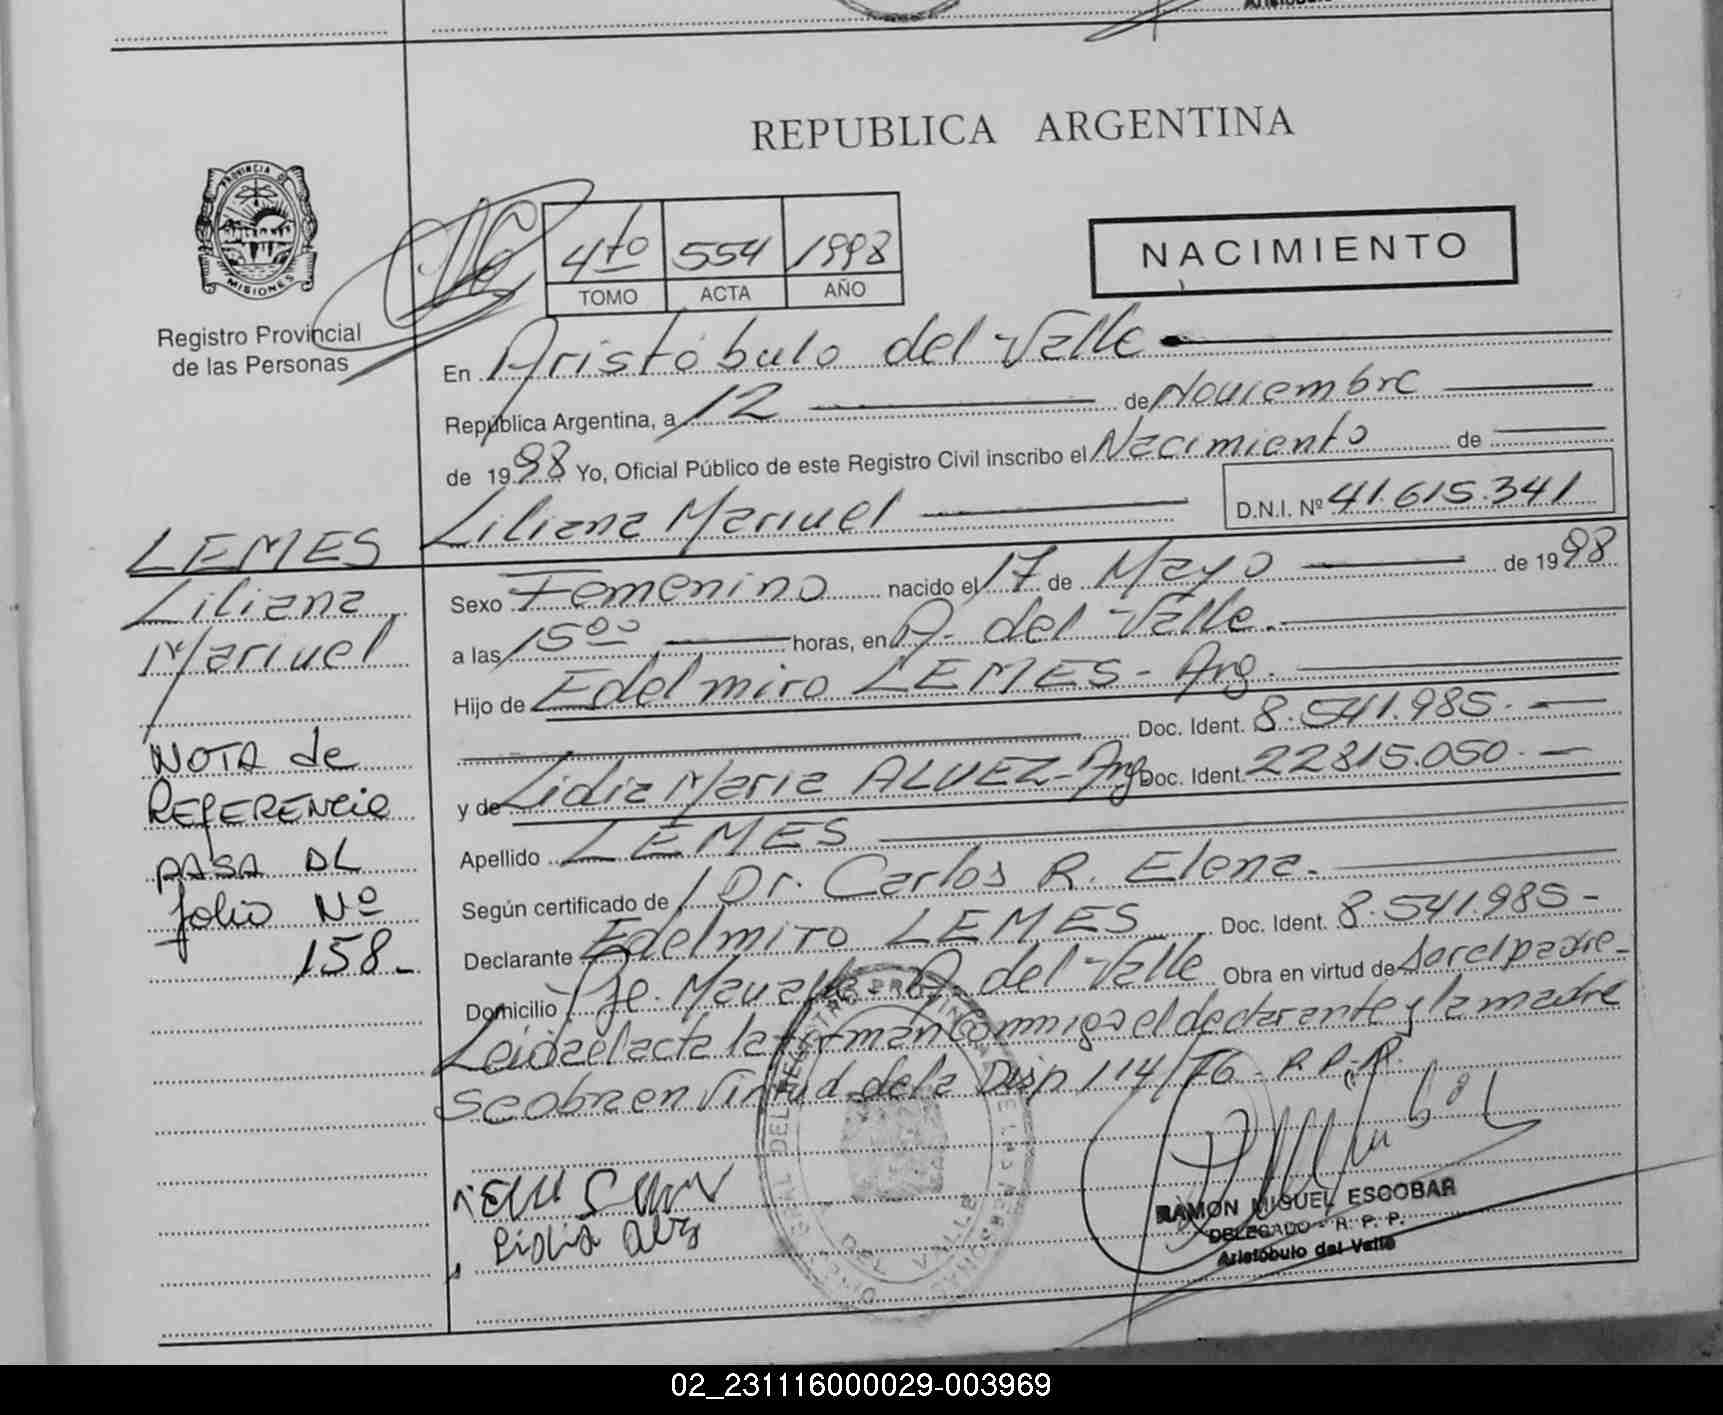 Aristóbulo
REPUBLICA ARGENTINA
PROVINCIA DE
MISIONES
Registro Provincial
de las Personas
4to 554 1998
TOMO ACTA AÑO
NACIMIENTO
En Aristóbulo del Valle
República Argentina, a 12 de Noviembre
de 1998 Yo, Oficial Público de este Registro Civil inscribo el Nacimiento de
Liliana Marivel D.N.I. Nº 41.615.341
LEMES
Liliana
Marivel
NOTA de
REFERENCIA
PASA AL
folio Nº
158.-
Sexo Femenino nacido el 17 de Mayo de 1998
a las 15 00 horas, en A. del Valle.
Hijo de Edelmiro LEMES - Arg.
Doc. Ident. 8.541.985.-
y de Lidia Maria ALVEZ - Arg. Doc. Ident. 22815.050.-
Apellido LEMES
Según certificado de Dr. Carlos R. Elena.
Declarante Edelmiro LEMES Doc. Ident. 8.541.985-
Domicilio Pje. A. del Valle Obra en virtud de Ser el padre-
Leida el acta la firman Conmigo el declarante y la madre
Se obra en Virtud de la Disp 114/76 - R.P.P.
Lidia
RAMON MIGUEL ESCOBAR
DELEGADO - R. P. P.
Aristóbulo del Valle
DEL VALLE
02_231116000029-003969